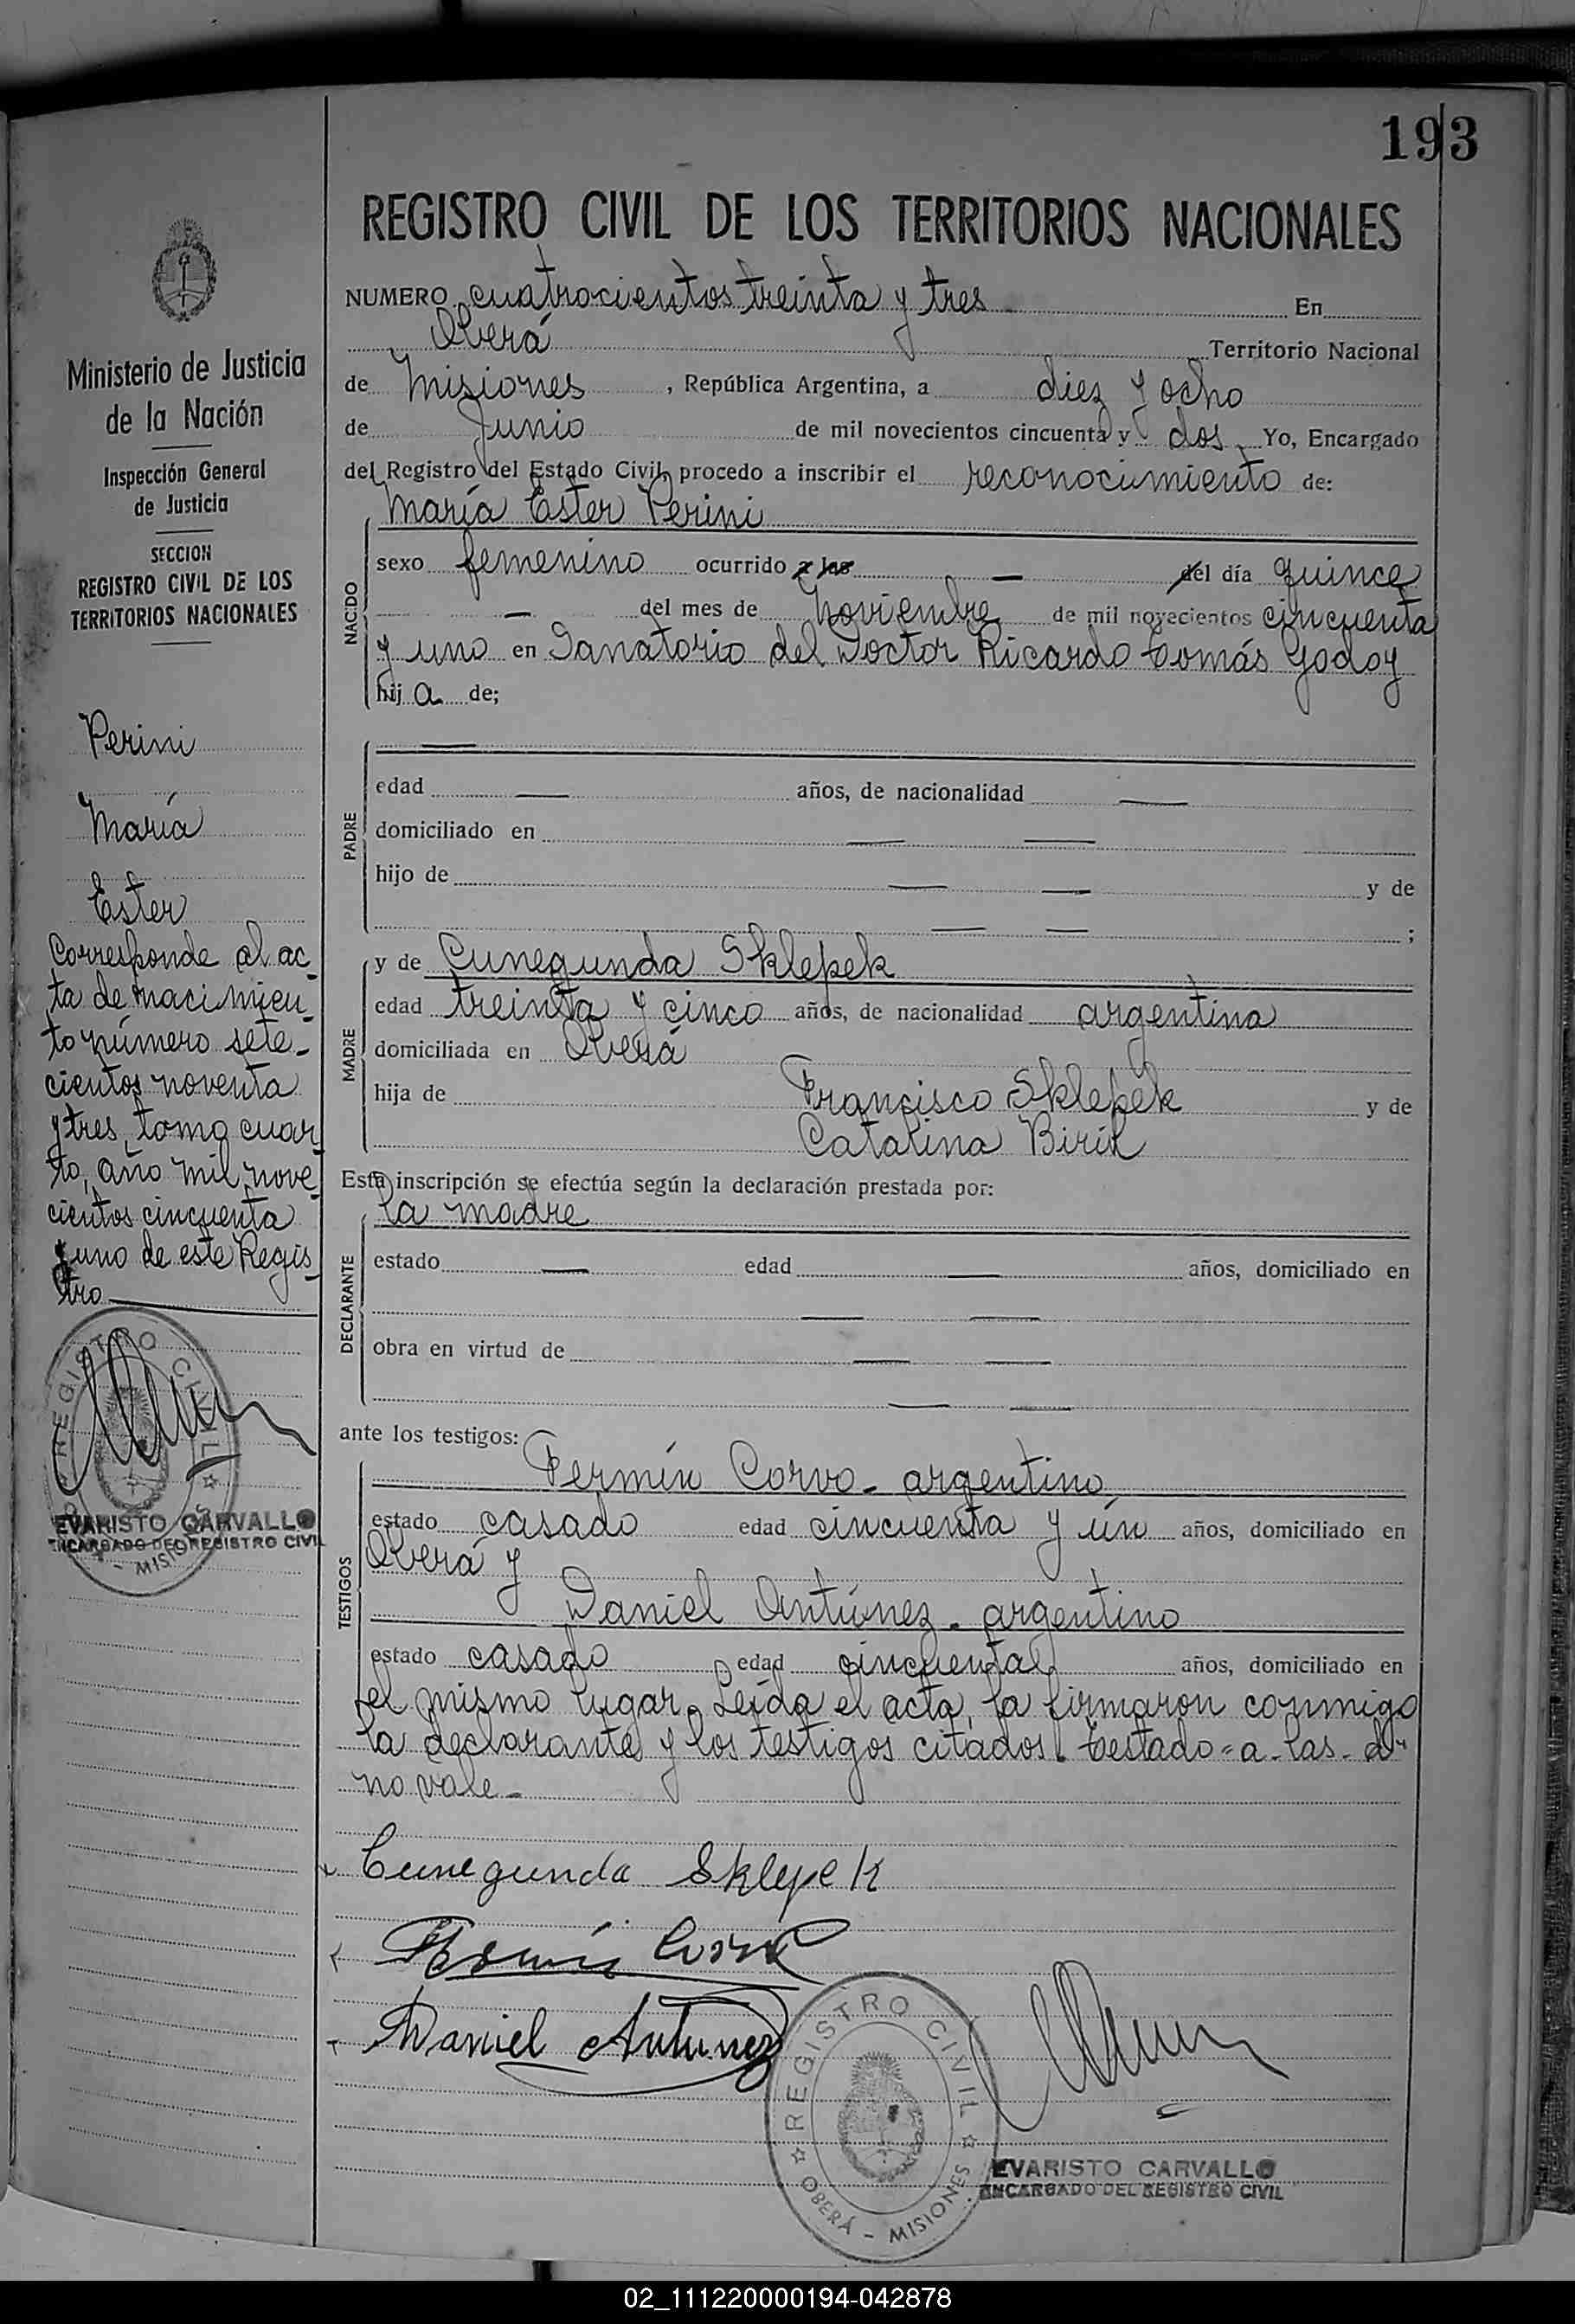 193
REGISTRO CIVIL DE LOS TERRITORIOS NACIONALES
NUMERO cuatrocientos treinta y tres En
Oberá Territorio Nacional
de Misiones, República Argentina, a diez y ocho
de Junio de mil novecientos cincuenta y dos Yo, Encargado
del Registro del Estado Civil, procedo a inscribir el reconocimiento de:
NACIDO
María Ester Perini
sexo femenino ocurrido a las — del día quince
— del mes de Noviembre de mil novecientos cincuenta
y uno en Sanatorio del Doctor Ricardo Tomás Godoy
hij a de;
PADRE
—
edad — años, de nacionalidad —
domiciliado en — —
hijo de — — y de
— — ;
MADRE
y de Cunegunda Sklepek
edad treinta y cinco años, de nacionalidad argentina
domiciliada en Oberá
hija de Francisco Sklepek y de
Catalina Birik
Esta inscripción se efectúa según la declaración prestada por:
DECLARANTE
la madre
estado — edad — años, domiciliado en
— —
obra en virtud de — —
— —
ante los testigos:
TESTIGOS
Fermín Corvo - argentino
estado casado edad cincuenta y ún años, domiciliado en
Oberá y
Daniel Antúnez - argentino
estado casado edad cincuenta años, domiciliado en
el mismo lugar. Leída el acta, la firmaron conmigo
la declarante y los testigos citados. Testado = a - las - d"
no vale -
Cunegunda Sklepek
Fermín Corvo
Daniel Antunez
REGISTRO CIVIL
OBERÁ - MISIONES
EVARISTO CARVALLO
ENCARGADO DEL REGISTRO CIVIL
Ministerio de Justicia
de la Nación
Inspección General
de Justicia
SECCION
REGISTRO CIVIL DE LOS
TERRITORIOS NACIONALES
Perini
María
Ester
Corresponde al ac-
ta de nacimien-
to número sete-
cientos noventa
y tres, tomo cuar-
to, año mil nove-
cientos cincuenta
y uno de este Regis-
tro
REGISTRO CIVIL
MISIONES
EVARISTO CARVALLO
ENCARGADO DEL REGISTRO CIVIL
02_111220000194-042878